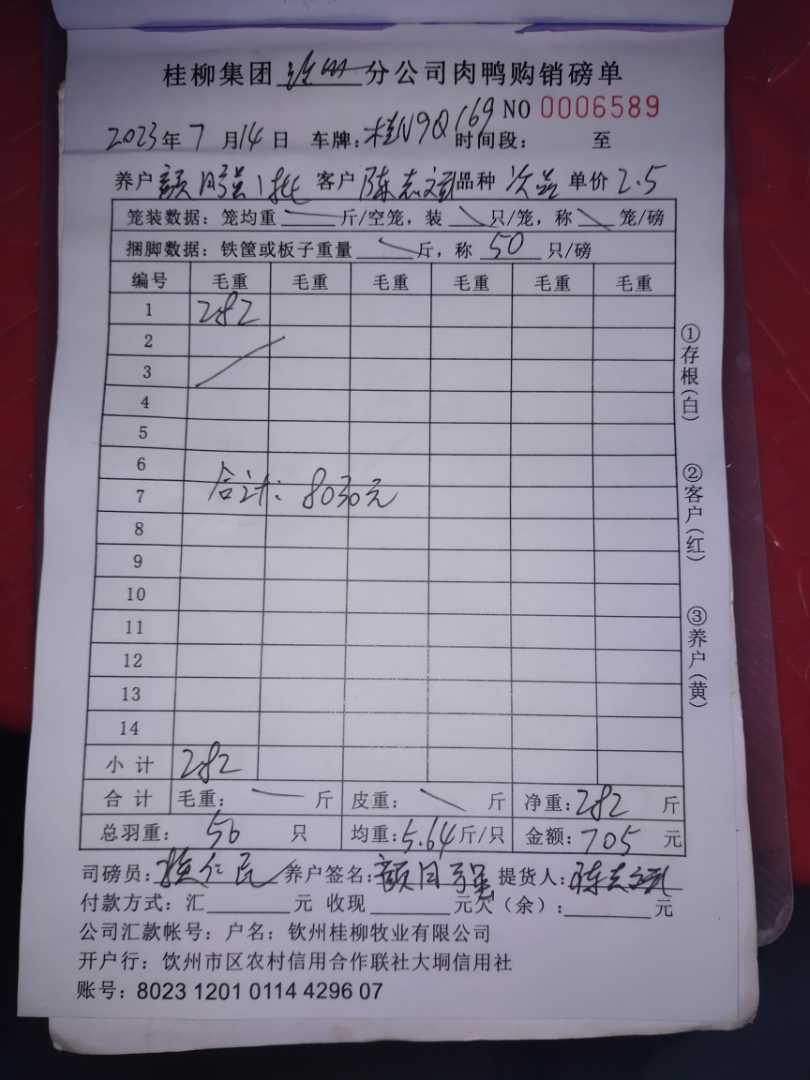 桂柳集团 钦州 分公司肉鸭购销磅单
NO 0006589
2023年7月14日 车牌：桂N9Q169 时间段： 至
养户 颜月强1批 客户 陈志斌 品种 次品 单价 2.5
笼装数据：笼均重 斤/空笼，装 只/笼，称 笼/磅
捆脚数据：铁筐或板子重量 斤，称 50 只/磅
编号 毛重 毛重 毛重 毛重 毛重 毛重
1 282
2
3
4
5
6
7
合计：8030元
8
9
10
11
12
13
14
小计 282
合计 毛重： 斤 皮重： 斤 净重：282 斤
总羽重： 50 只 均重：5.64斤/只 金额：705 元
司磅员： 养户签名：颜月强 提货人：陈志斌
付款方式：汇 元 收现 元欠（余）： 元
公司汇款帐号：户名：钦州桂柳牧业有限公司
开户行：饮州市区农村信用合作联社大垌信用社
账号：8023 1201 0114 4296 07
①存根（白）
②客户（红）
③养户（黄）